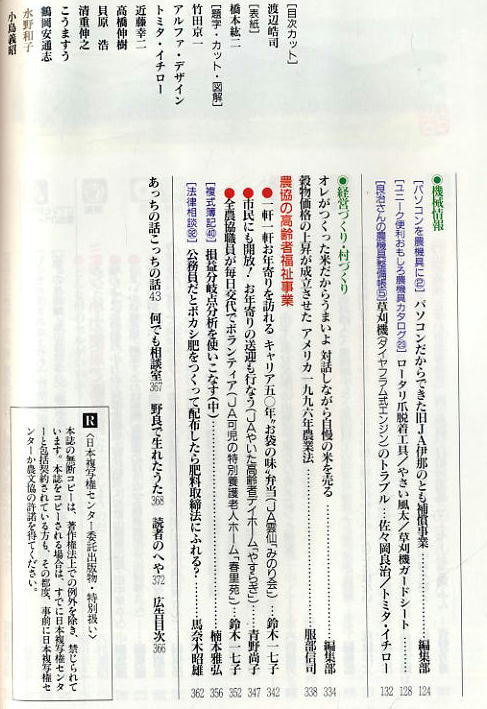 ●機械情報
[パソコンを農機具に㉒] パソコンだからできた旧JA伊那のとも補償事業……編集部 124
[ユニーク便利おもしろ農機具カタログ㉙] ロータリ爪脱着工具/やさい風太/草刈機ガードシート………128
[良治さんの農機具整備帳⑤] 草刈機(ダイヤフラム式エンジン)のトラブル…佐々岡良治/トミタ・イチロー 132
●経営づくり・村づくり
オレがつくった米だからうまいよ 対話しながら自慢の米を売る……編集部 334
穀物価格の上昇が成立させた アメリカ一九九六年農業法……服部信司 338
農協の高齢者福祉事業
●一軒一軒お年寄りを訪れる キャリア五〇年"お袋の味"弁当(JA雲仙「みのり会」)…鈴木一七子 342
●市民にも開放! お年寄りの送迎も行なう(JAやいた高齢者デイホーム「やすらぎ」)…青野尚子 347
●全農協職員が毎日交代でボランティア(JA可児の特別養護老人ホーム「春里苑」)…鈴木一七子 352
[複式簿記㊵] 損益分岐点分析を使いこなす(中)……楠本雅弘 356
[法律相談] 公務員だとボカシ肥をつくって配布したら肥料取締法にふれる?……馬奈木昭雄 362
あっちの話こっちの話43 何でも相談室367 野良で生れたうた368 読者のへや372 広告目次366
R〈日本複写権センター委託出版物 特別扱い〉
本誌の無断コピーは、著作権法上での例外を除き、禁じられて
います。本誌をコピーされる場合は、すでに日本複写権センタ
ーと包括契約されている方も、その都度、事前に日本複写権セ
ンターか農文協の許諾を得てください。
[目次カット]
渡辺皓司
[表紙]
橋本紘二
[題字・カット・図解]
竹田京一
アルファ・デザイン
トミタ・イチロー
近藤幸二
高橋伸樹
貝原 浩
清重伸之
こうますう
鶴岡安通志
水野和子
小島義昭